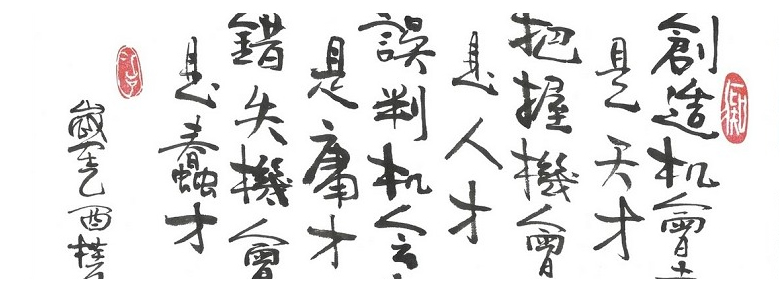 創造机會
是天才
把握機會
是人才
誤判机会
是庸才
錯失機會
是蠢才
歲在乙酉